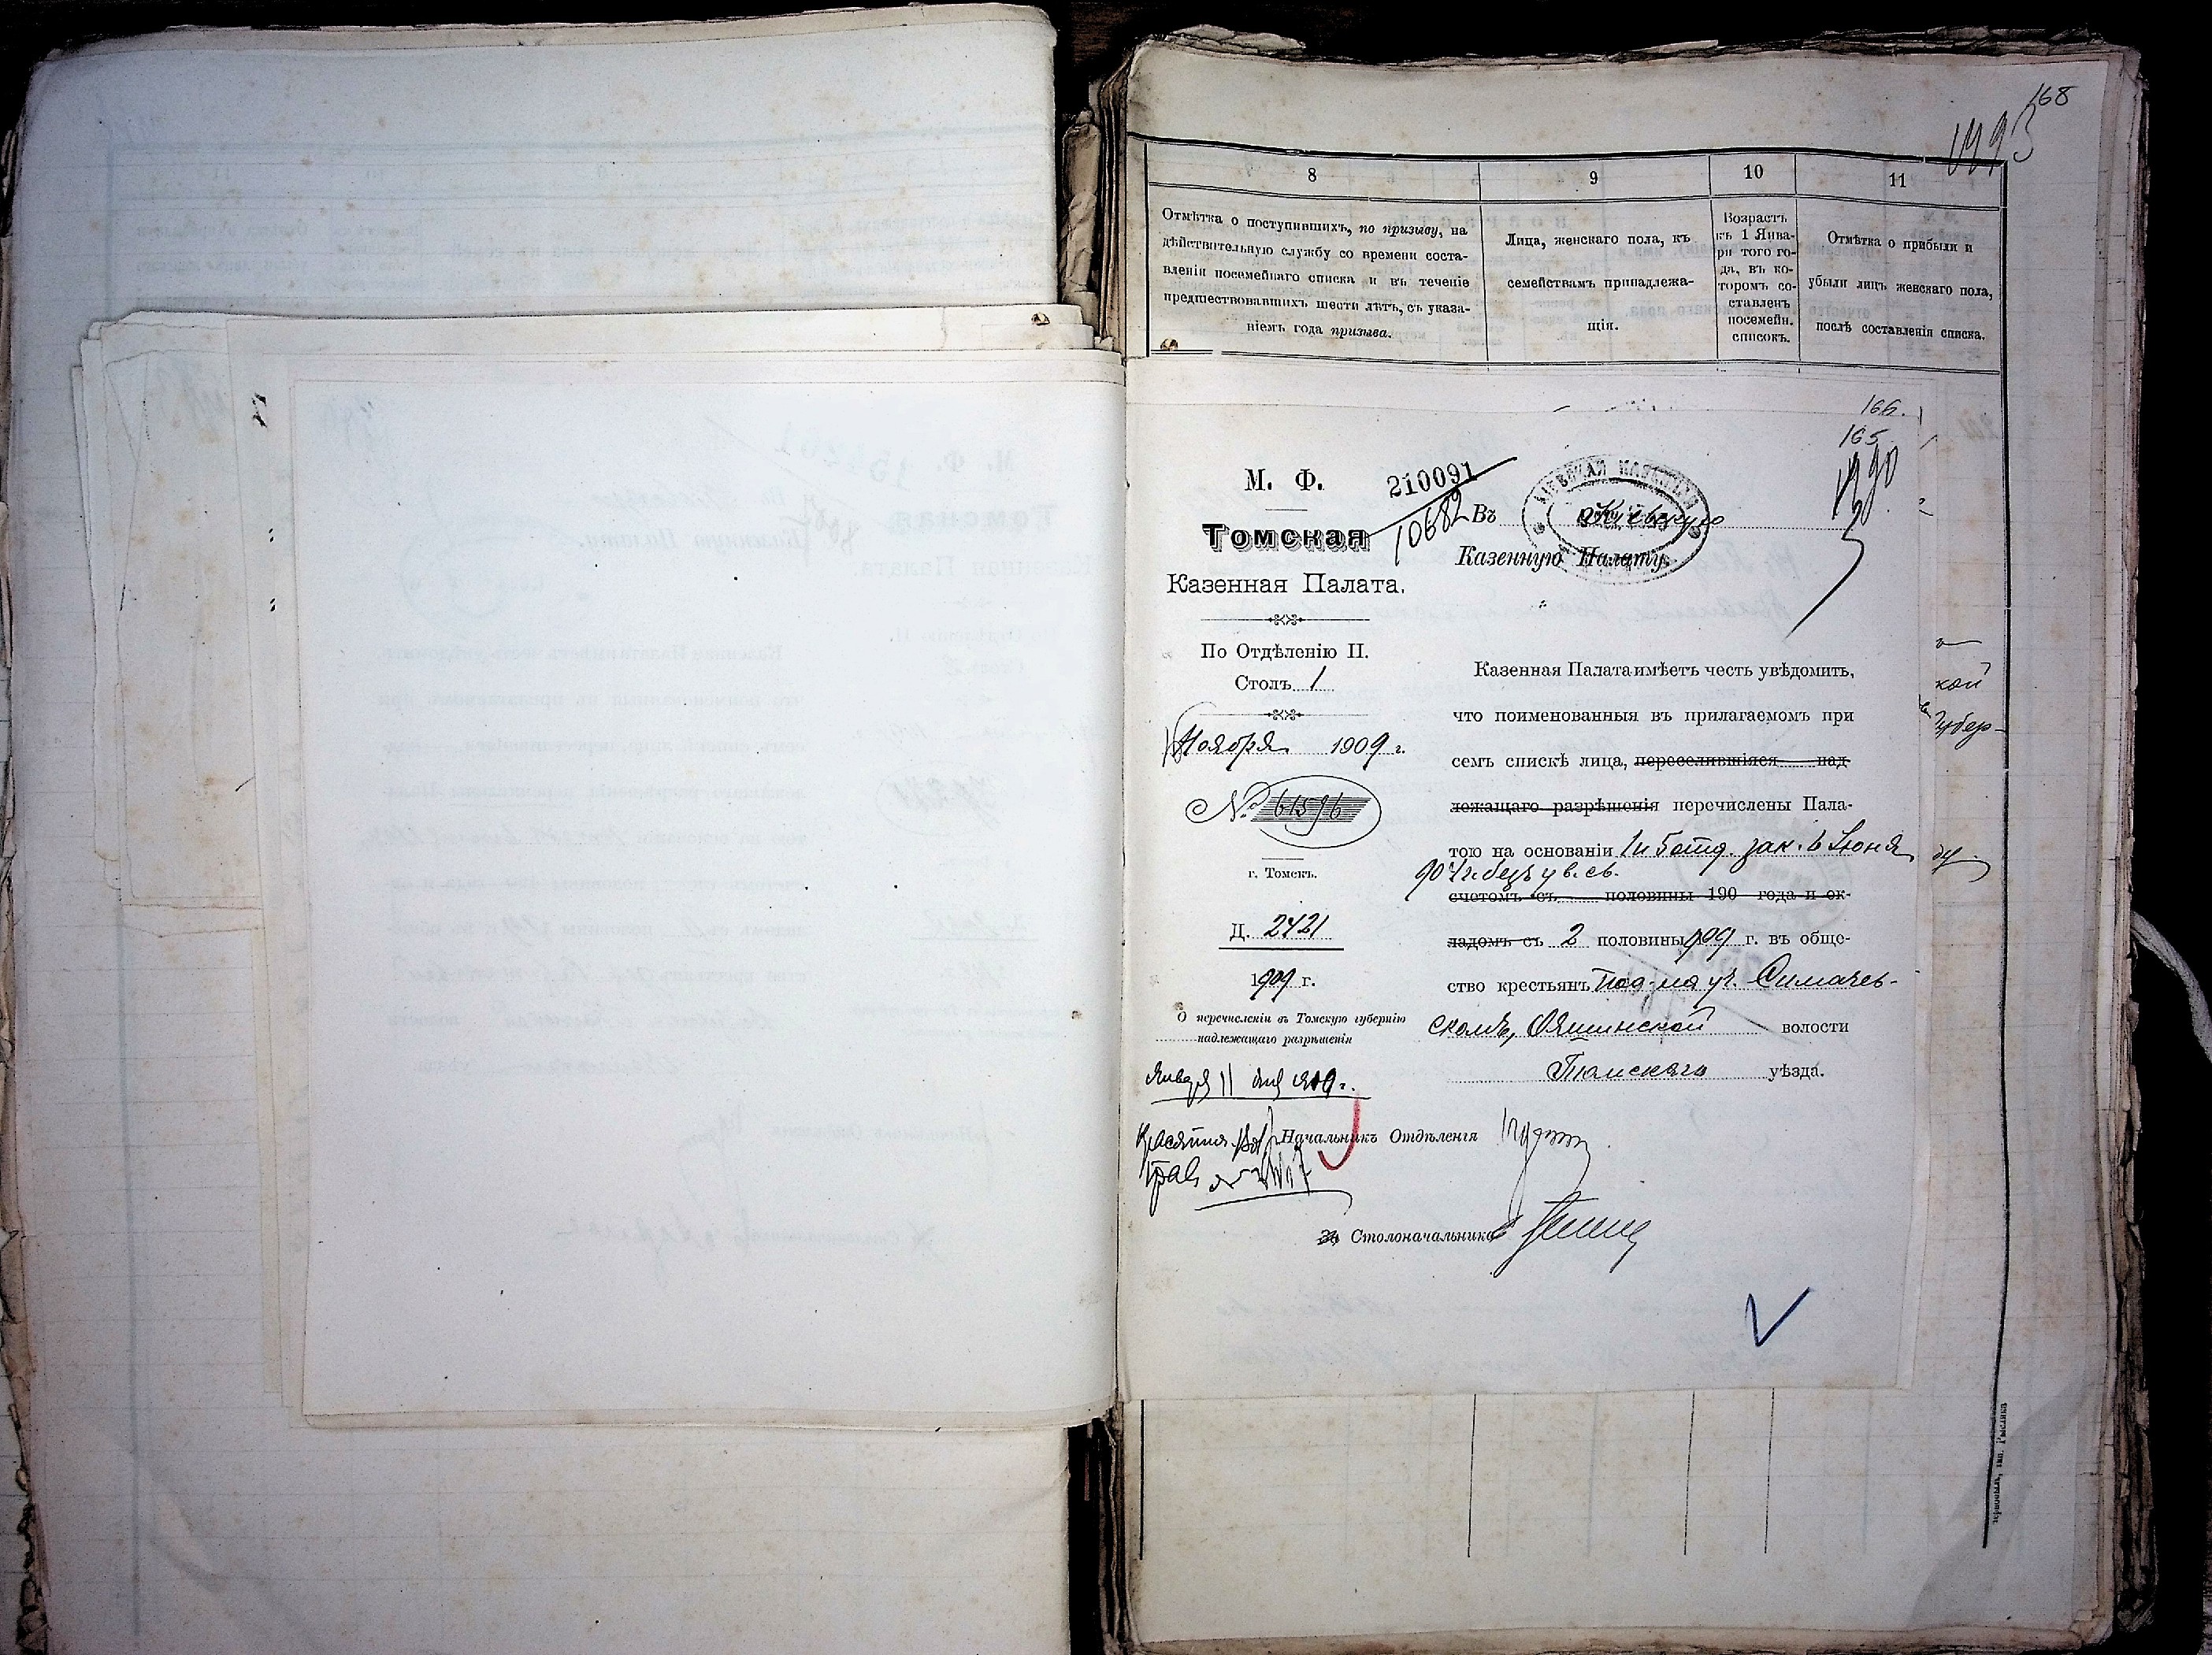 168
1193
8
9
10
11
Отмѣтка о поступившихъ, по призыву, на
дѣйствительную службу со времени соста-
вленія посемейнаго списка и въ теченіе
предшествовавшихъ шести лѣтъ, съ указа-
ніемъ года призыва.
Лица, женскаго пола, къ
семействамъ принадлежа-
щія.
Возрастъ
къ 1 Янва-
ря того го-
да, въ ко-
торомъ со-
ставленъ
посемейн.
списокъ.
Отмѣтка о прибыли и
убыли лицъ женскаго пола,
послѣ составленія списка.
166.
165
1190
М. Ф.
210091
10682
Томская
Казенная Палата.
Въ Кіевскую
Казенную Палату.
По Отдѣленію II.
Столъ 1
Ноября 1909 г.
№ 61596
г. Томскъ.
Д. 2421
1909 г.
О перечисленіи въ Томскую губернію
надлежащаго разрѣшенія
Казенная Палата имѣетъ честь увѣдомить,
что поименованныя въ прилагаемомъ при
семъ спискѣ лица, переселившіяся над
лежащаго разрѣшенія перечислены Пала-
тою на основаніи зак. 6 Іюня
904 г. безъ ув. св.
счетомъ съ половины 190 года и ок-
ладомъ съ 2 половины 1909 г. въ обще-
ство крестьянъ уч. Симачев-
скомъ, Ояшинской волости
Томскаго уѣзда.
Января 11 дня
Начальникъ Отдѣленія
Столоначальникъ
кой
губер-